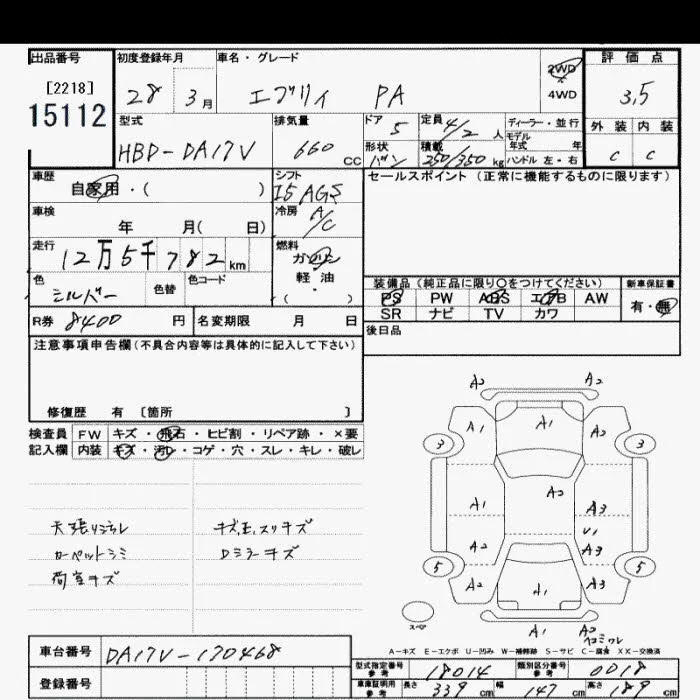 出品番号
[2218]
15112
初度登録年月
28 3月
車名・グレード
エブリイ PA
2WD
4WD
評価点
3.5
外装 内装
C C
型式
HBD-DA17V
排気量
660 CC
ドア 5
形状 バン
定員 4/2 人
積載 250/350 kg
ディーラー・並行
モデル
年式 年
ハンドル 左・右
車歴
自家用・( )
シフト
I5 AGS
セールスポイント (正常に機能するものに限ります)
車検
年 月( 日)
冷房 A/C
走行
12万5千782km
燃料
ガソリン
軽・油
・
( )
色
シルバー
色替
色コード
装備品 (純正品に限り○をつけてください)
PS PW ABS エアB AW
SR ナビ TV カワ
新車保証書
有・無
R券 8400 円
名変期限 月 日
後日品
注意事項申告欄 (不具合内容等は具体的に記入して下さい)
修復歴 有 〔箇所 〕
検査員
記入欄
FW キズ・飛石・ヒビ割・リペア跡・×要
内装 キズ・汚レ・コゲ・穴・スレ・キレ・破レ
天張リ
カーペットシミ
荷室キズ
キズ、エ、スリキズ
Dミラーキズ
A2 A2
A1 A1 A2
3 3
A2
A1 A3
U1
A2 A3
5 5
A2 A1 A3
スペア
A1 A2
A-キズ E-エクボ U-凹み W-補修跡 S-サビ C-腐食 XX-交換済
車台番号 DA17V-170468
登録番号
型式指定番号
参考
18014
類別区分番号
参考
0018
車庫証明用
参考
長さ 339 cm
幅 147 cm
高さ 189 cm